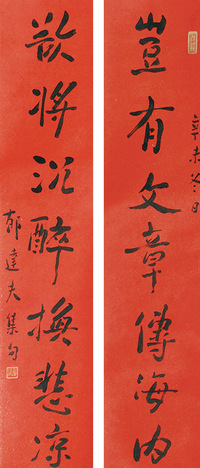 辛未冬日
豈有文章傳海内
欲將沉醉換悲凉
郁達夫集句